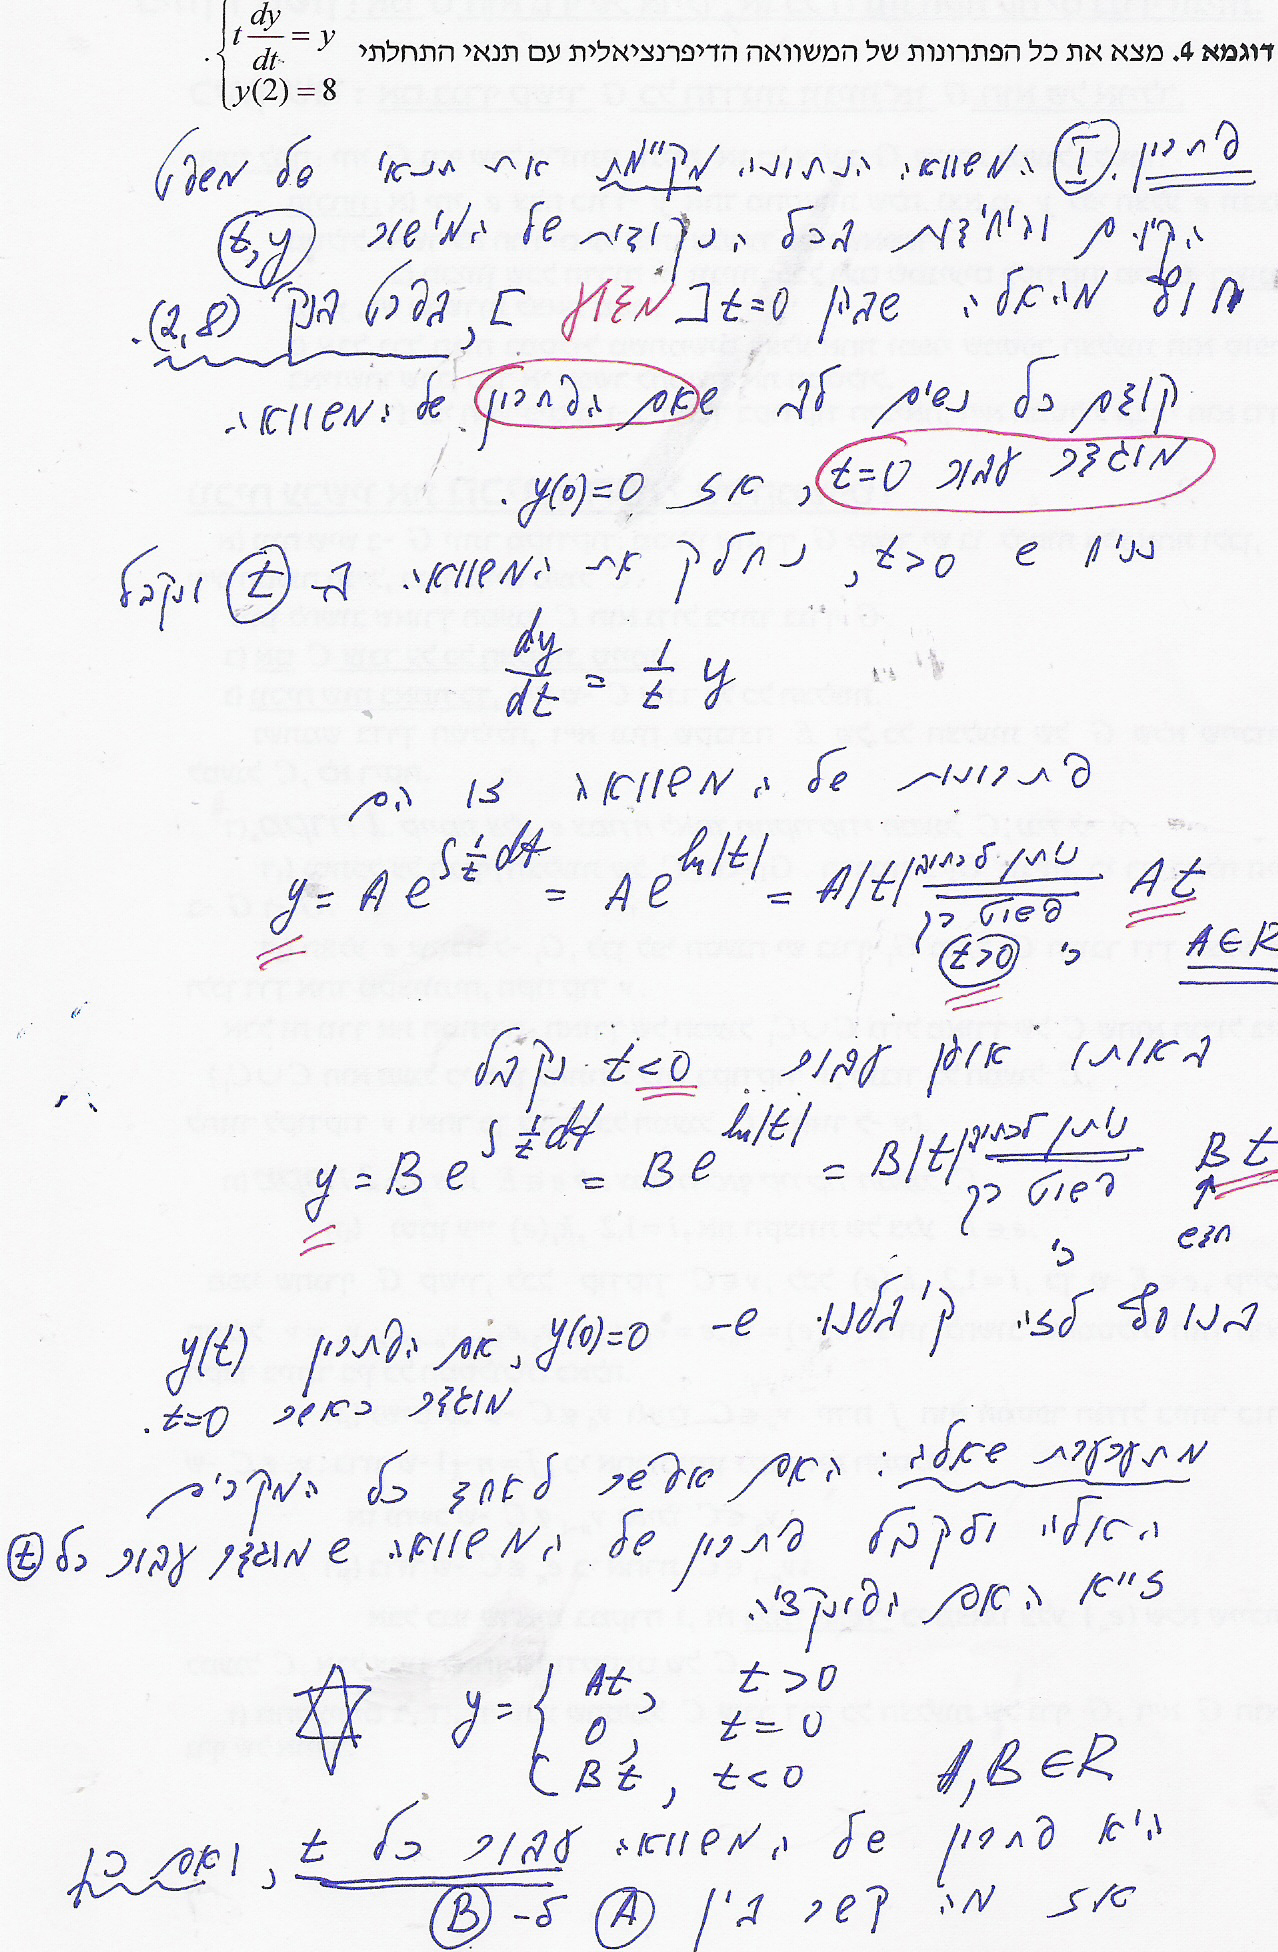 דוגמא 4. מצא את כל הפתרונות של המשוואה הדיפרנציאלית עם תנאי התחלתי { t dy/dt = y
y(2) = 8
פתרון. I המשוואה הנתונה מקיימת את תנאי של משפט
הקיום והיחידות בכל הנקודות של המישור t,y
חוץ מהאלה שבהן t=0 [מדוע], בפרט בנק' (2,8).
קודם כל נשים לב שאם הפתרון של המשוואה
מוגדר עבור t=0, אז y(0)=0.
נניח ש t>0, נחלק את המשוואה ב- t ונקבל
dy/dt = 1/t y
פתרונות של המשוואה זו הם
y = A e^∫1/t dt = A e^ln|t| = A|t| ניתן לכתוב פשוט כך At
כי t>0 A∈R
באותו אופן עבור t<0 נקבל
y = B e^∫1/t dt = B e^ln|t| = B|t| ניתן לכתוב פשוט כך Bt
כי חדש
בנוסף לזה קיבלנו ש- y(0)=0, אם הפתרון y(t)
מוגדר כאשר t=0.
מתעוררת שאלה: האם אפשר לאחד כל המקרים
האלה ולקבל פתרון של המשוואה שמוגדר עבור כל t
ז"א האם הפונקציה
y = { At, t>0
0, t=0
Bt, t<0 A,B∈R
היא פתרון של המשוואה עבור כל t, ואם כן
אז מה קשר בין A ל- B